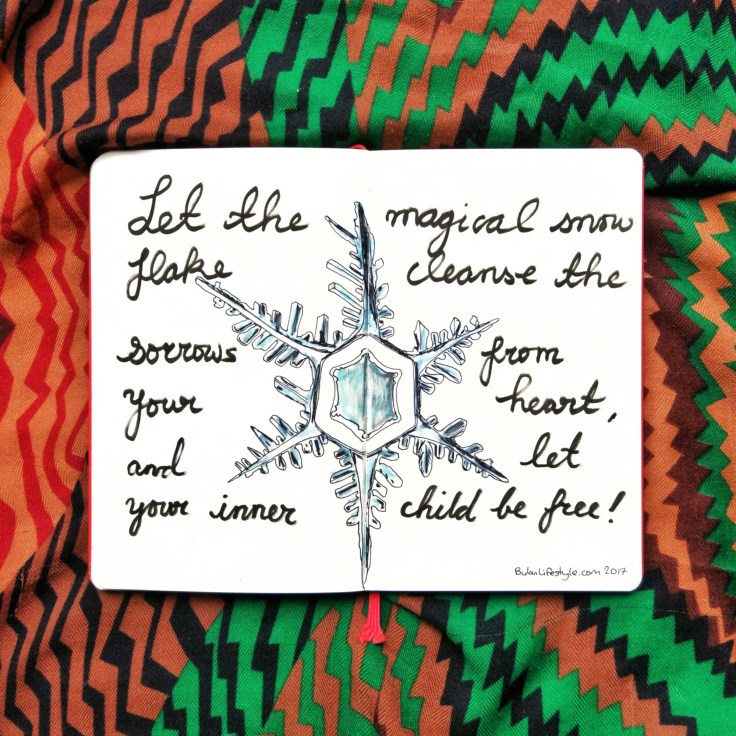 Let the magical snow
flake cleanse the
sorrows from
your heart,
and let
your inner child be free!
BulanLifestyle.com 2017